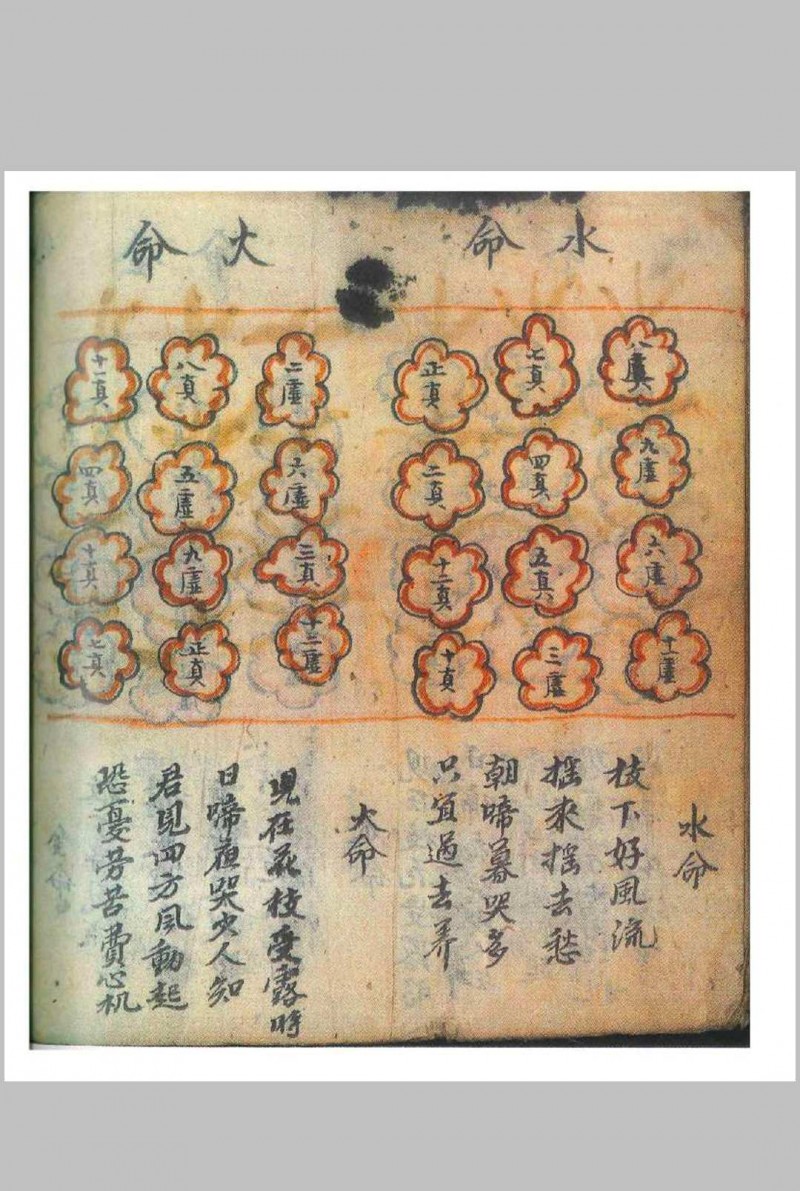 水命
八
九虛
六虛
十一虛
七真
四真
五真
三虛
正真
二真
十二真
十真
大命
二虛
六虛
三真
十二虛
八真
五虛
九虛
正真
十一真
四真
十真
七真
水命
枝下好風流
搖來搖去愁
朝啼暮哭多
只宜過去养
大命
現在花枝受露時
日啼夜哭少人知
君見四方风動起
恐憂劳苦費心机